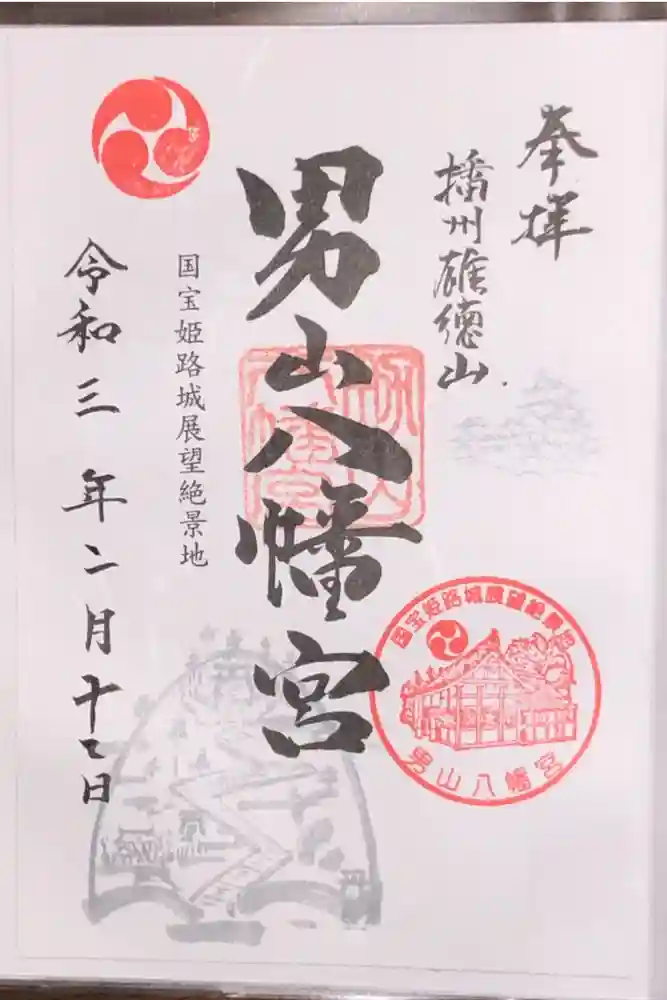 奉拝
播州雄徳山
男山八幡宮
国宝姫路城展望絶景地
令和三年二月十二日
国宝姫路城展望絶景地
男山八幡宮